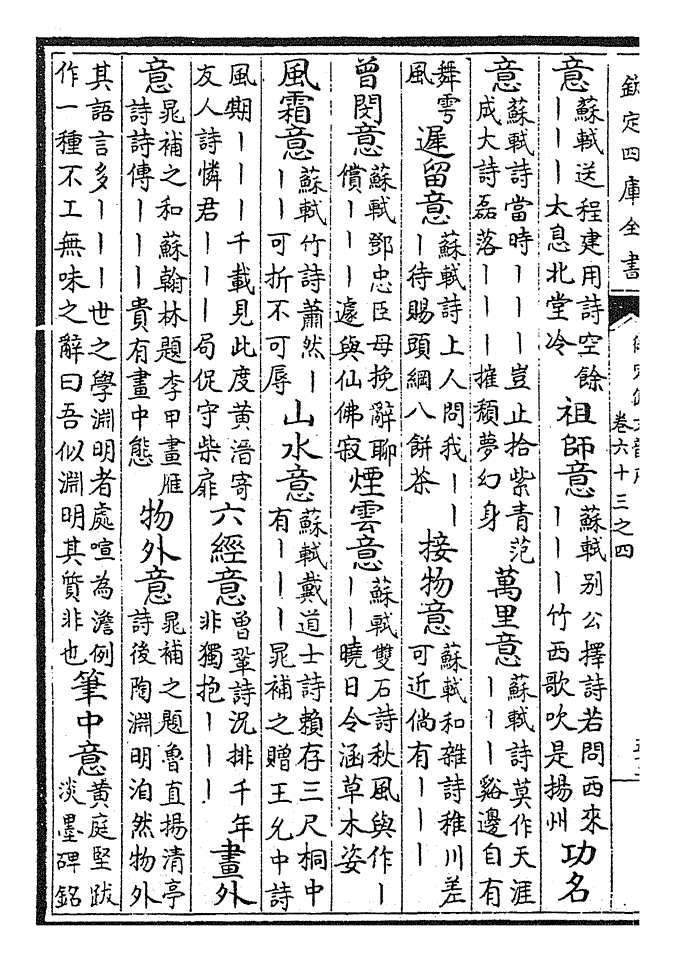 欽定四庫全書
卷六十三之四
意蘇軾送程建用詩空餘｜｜｜太息北堂冷祖師意蘇軾别公擇詩若問西來｜｜｜竹西歌吹是揚州功名
意蘇軾詩當時｜｜｜豈止拾紫青范成大詩磊落｜｜｜摧頹夢幻身萬里意蘇軾詩莫作天涯｜｜｜谿邊自有
舞雩風遲留意蘇軾詩上人問我｜｜｜待賜頭綱八餅茶接物意蘇軾和雜詩稚川差可近倘有｜｜｜
曾閔意蘇軾鄧忠臣母挽辭聊償｜｜｜遽與仙佛寂煙雲意蘇軾雙石詩秋風與作｜｜｜曉日令涵草木姿
風霜意蘇軾竹詩蕭然｜｜｜可折不可辱山水意蘇軾戴道士詩賴存三尺桐中有｜｜｜晁補之贈王允中詩
風期｜｜｜千載見此度黄溍寄友人詩憐君｜｜｜局促守柴扉六經意曾鞏詩況排千年非獨抱｜｜｜畫外
意晁補之和蘇翰林題李甲畫雁詩詩傳｜｜｜貴有畫中態物外意晁補之題魯直揚清亭詩後陶淵明泊然物外
其語言多｜｜｜世之學淵明者處喧為澹例作一種不工無味之辭曰吾似淵明其質非也筆中意黄庭堅跋淡墨碑銘